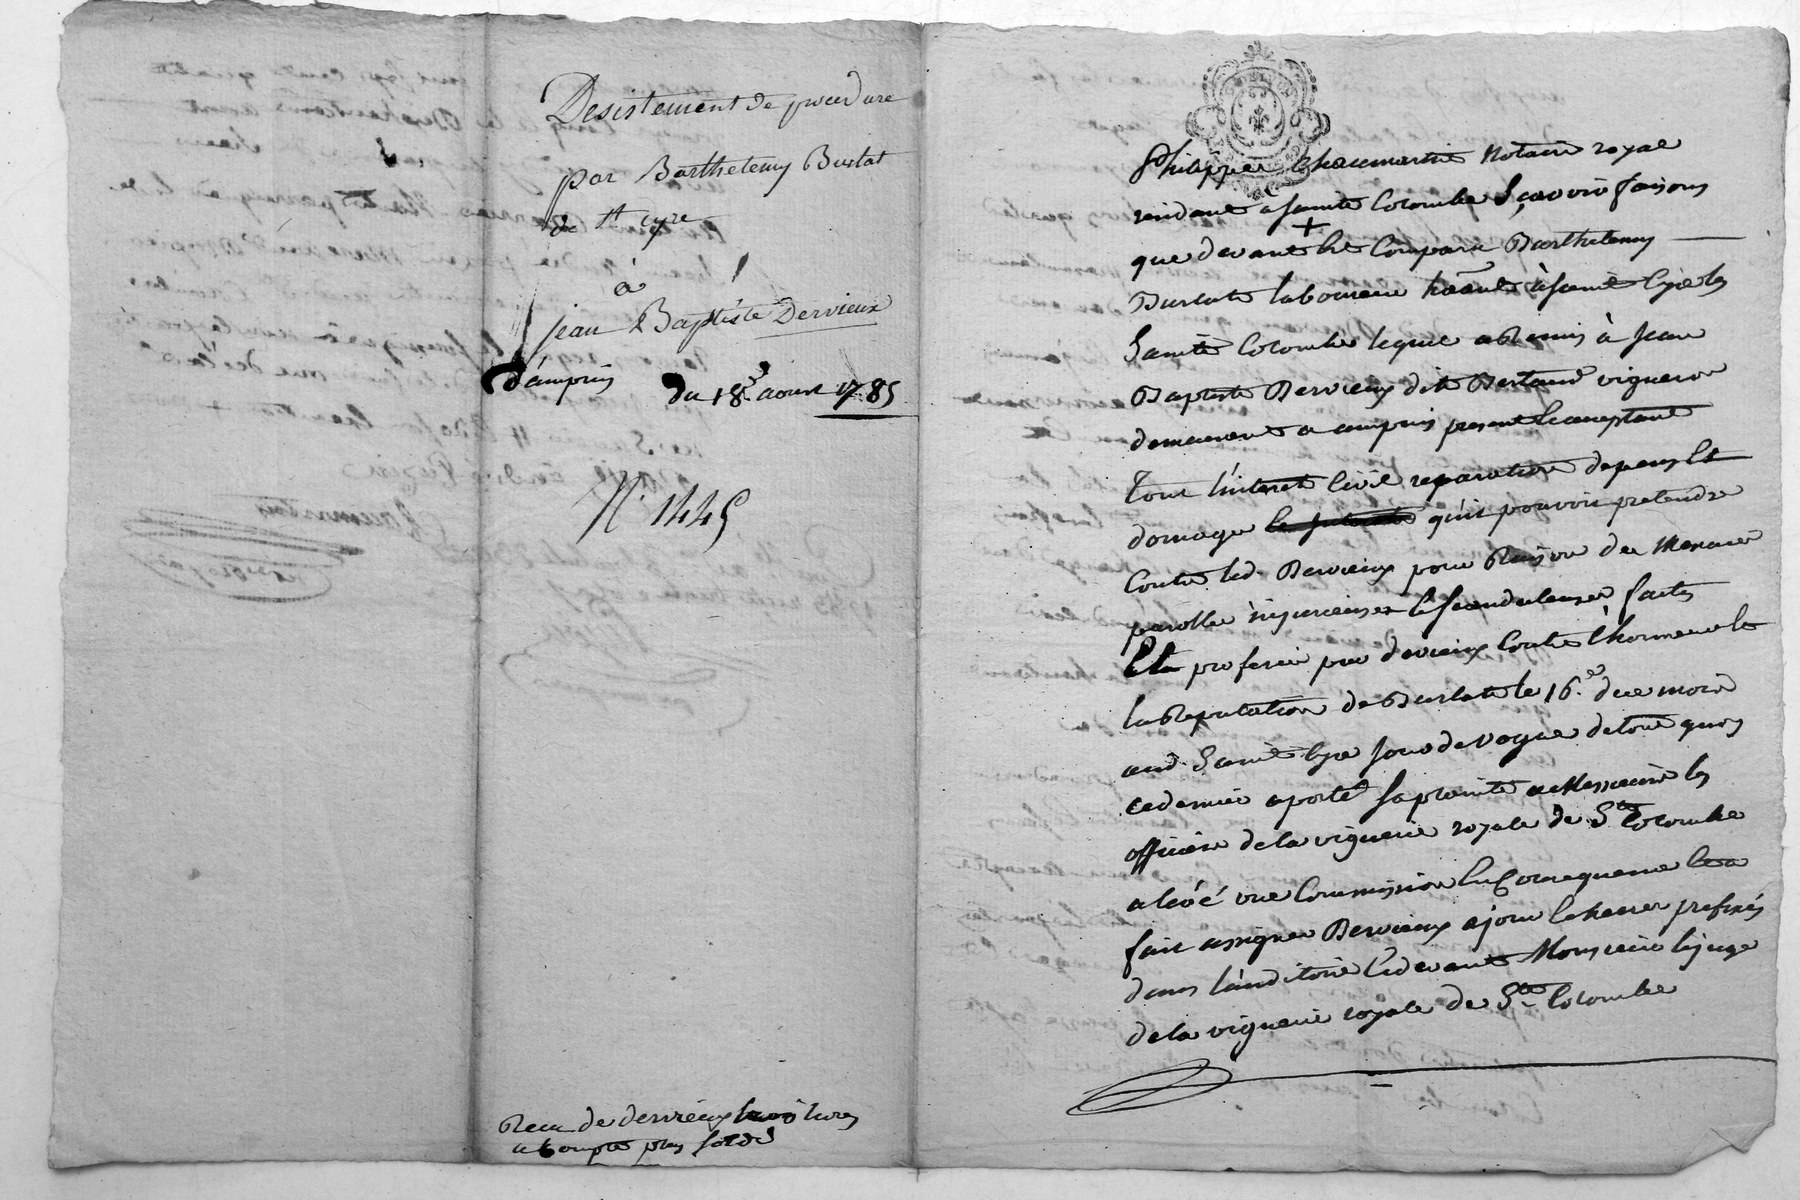 Desistement de procedure
par Barthelemy Burlat
de St cyre
à
jean Baptiste Dervieux
d'ampuis
du 18e aoust 1785
N. 1445
Recu de dervieux livres
a compte plus soldé
Philippe Notaire royal
residant a sainte Colombe Sçavoir faisons
que devant Comparu Barthelemy
Burlat laboureur à saint Cyre les
Sainte Colombe lequel a remis à Jean
Baptiste Dervieux dit Bertaud vigneron
demeurant a ampuis present & acceptant
Tout l'interet Civil reparation depens et
domage qu'il pouvoit pretendre
Contre led. Dervieux pour Raison des Menaces
parolles injurieuses & scandaleuses faites
Et proferées par dervieux Contre l'honneur et
la Reputation de Burlat le 16e du mois
aud. Saint Cyre jour de vogue de tout quoy
ce dernier a porté sa plainte a Messieurs les
officiers de la viguerie royale de Ste Colombe
a levé une Commission En Consequence
fait assigner Dervieux a jour & heures prefixés
dans l'auditoire & devant Monsieur le juge
de la viguerie royale de Ste Colombe